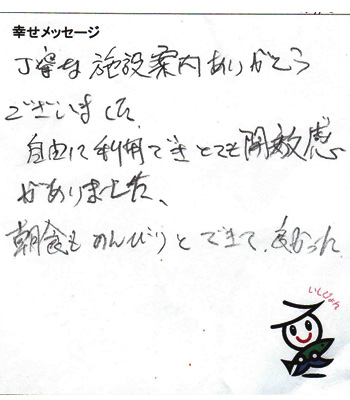 幸せメッセージ
丁寧な施設案内ありがとう
ございました
自由に利用でき とても開放感
がありました、
朝食も のんびりと できて、良かった
いしぴょん